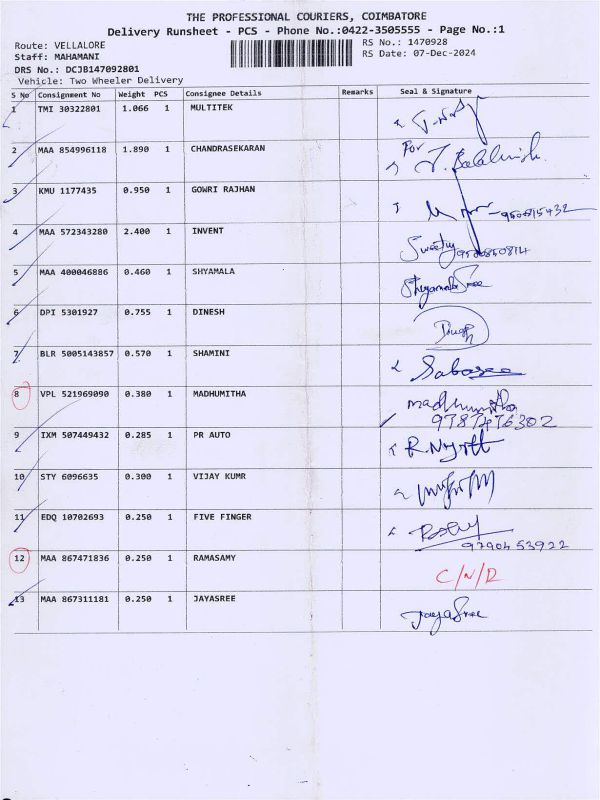 THE PROFESSIONAL COURIERS, COIMBATORE
Delivery Runsheet - PCS - Phone No.:0422-3505555 - Page No.:1
Route: VELLALORE RS No.: 1470928
Staff: MAHAMANI RS Date: 07-Dec-2024
DRS No.: DCJB147092801
Vehicle: Two Wheeler Delivery
S No Consignment No Weight PCS Consignee Details Remarks Seal & Signature
1 TMI 30322801 1.066 1 MULTITEK
2 MAA 854996118 1.890 1 CHANDRASEKARAN For
3 KMU 1177435 0.950 1 GOWRI RAJHAN
4 MAA 572343280 2.400 1 INVENT Sweety
5 MAA 400046886 0.460 1 SHYAMALA Shyamala Sree
6 DPI 5301927 0.755 1 DINESH
7 BLR 5005143857 0.570 1 SHAMINI
8 VPL 521969090 0.380 1 MADHUMITHA madhumitha
9787476302
9 IXM 507449432 0.285 1 PR AUTO
10 STY 6096635 0.300 1 VIJAY KUMR
11 EDQ 10702693 0.250 1 FIVE FINGER
9790453922
12 MAA 867471836 0.250 1 RAMASAMY C/N/R
13 MAA 867311181 0.250 1 JAYASREE JayaSree